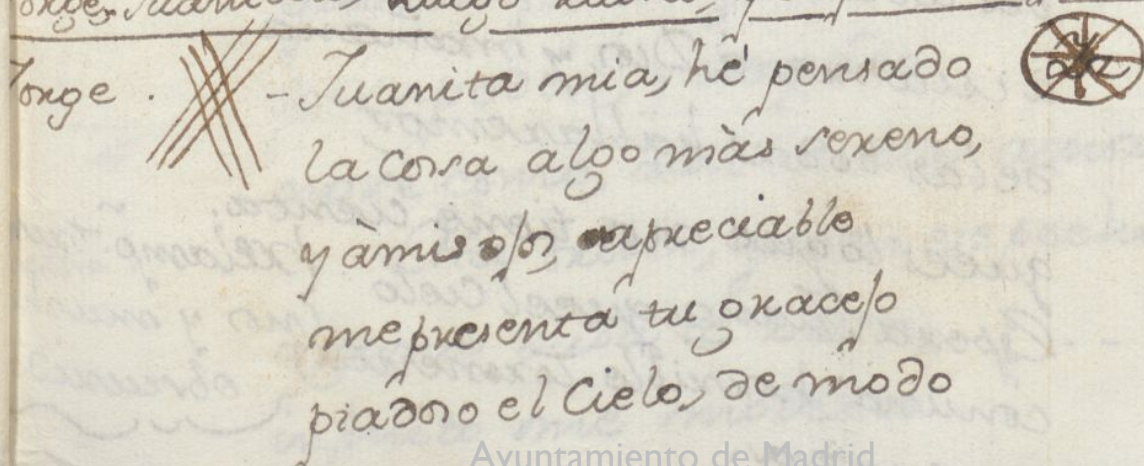 Jorge. - Juanita mia, hé pensado
la cosa algo màs sereno,
y àmis ojos, apreciable
me presenta tu gracejo
piadoso el Cielo, de modo
Ayuntamiento de Madrid